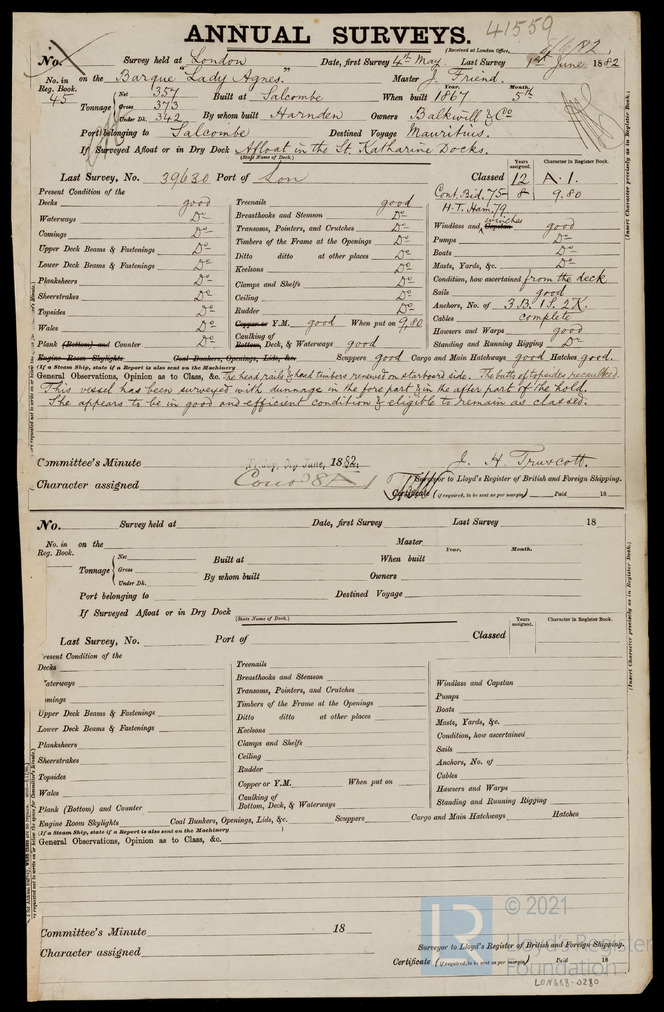 ANNUAL SURVEYS.
41559
(Received at London Office, 8/6/82)
No. Survey held at London Date, first Survey 4th May. Last Survey 1st June. 1882
No. in Reg. Book. 45 on the Barque "Lady Agnes." Master J. Friend.
Tonnage Net 357 Gross 373 Under Dk. 342 Built at Salcombe When built Year. 1867 Month. 5th
By whom built Harnden Owners Balkwill & Co
Port belonging to Salcombe Destined Voyage Mauritius.
If Surveyed Afloat or in Dry Dock Afloat in the St. Katharine Docks.
(State Name of Dock.)
Last Survey, No. 39630 Port of Lon Classed Years assigned. 12 Character in Register Book. A.1.
Cont. Bid. 75- 8 9.80
H.T. Ham. 79.
Present Condition of the
Decks good
Waterways Do
Comings Do
Upper Deck Beams & Fastenings Do
Lower Deck Beams & Fastenings Do
Planksheers Do
Sheerstrakes Do
Topsides Do
Wales Do
Plank (Bottom) and Counter Do
Treenails good
Breasthooks and Stemson Do
Transoms, Pointers, and Crutches Do
Timbers of the Frame at the Openings Do
Ditto ditto at other places Do
Keelsons Do
Clamps and Shelfs Do
Ceiling Do
Rudder Do
Copper or Y.M. good When put on 9.80
Caulking of Bottom, Deck, & Waterways good
Windlass and Capstan winches good
Pumps Do
Boats Do
Masts, Yards, &c. Do
Condition, how ascertained from the deck
Sails good
Anchors, No. of 3 B. 1 S. 2 K.
Cables complete
Hawsers and Warps good
Standing and Running Rigging Do
Engine Room Skylights Coal Bunkers, Openings, Lids, &c. Scuppers good Cargo and Main Hatchways good Hatches good.
(If a Steam Ship, state if a Report is also sent on the Machinery
General Observations, Opinion as to Class, &c. The head rails & head timbers renewed on starboard side. The butts of topsides recaulked.
This vessel has been surveyed with dunnage in the fore part & in the after part of the hold.
She appears to be in good and efficient condition & eligible to remain as classed.
J. H. Truscott.
Committee's Minute Friday, 9th June, 1882.
Surveyor to Lloyd's Register of British and Foreign Shipping.
Character assigned A 1
Certificate (if required, to be sent as per margin) Paid 18
(Insert Character precisely as in Register Book.)
No. Survey held at Date, first Survey Last Survey 18
No. in Reg. Book. on the Master
Tonnage Net Gross Under Dk. Built at When built Year. Month.
By whom built Owners
Port belonging to Destined Voyage
If Surveyed Afloat or in Dry Dock
(State Name of Dock.)
Last Survey, No. Port of Classed Years assigned. Character in Register Book.
Present Condition of the
Decks
Waterways
Comings
Upper Deck Beams & Fastenings
Lower Deck Beams & Fastenings
Planksheers
Sheerstrakes
Topsides
Wales
Plank (Bottom) and Counter
Treenails
Breasthooks and Stemson
Transoms, Pointers, and Crutches
Timbers of the Frame at the Openings
Ditto ditto at other places
Keelsons
Clamps and Shelfs
Ceiling
Rudder
Copper or Y.M. When put on
Caulking of Bottom, Deck, & Waterways
Windlass and Capstan
Pumps
Boats
Masts, Yards, &c.
Condition, how ascertained
Sails
Anchors, No. of
Cables
Hawsers and Warps
Standing and Running Rigging
Engine Room Skylights Coal Bunkers, Openings, Lids, &c. Scuppers Cargo and Main Hatchways Hatches
(If a Steam Ship, state if a Report is also sent on the Machinery )
General Observations, Opinion as to Class, &c.
Committee's Minute 18
Surveyor to Lloyd's Register of British and Foreign Shipping.
Character assigned
Certificate (if required, to be sent as per margin) Paid 18
(Insert Character precisely as in Register Book.)
© 2021
LR
Lloyd's Register
Foundation
LON668-0280